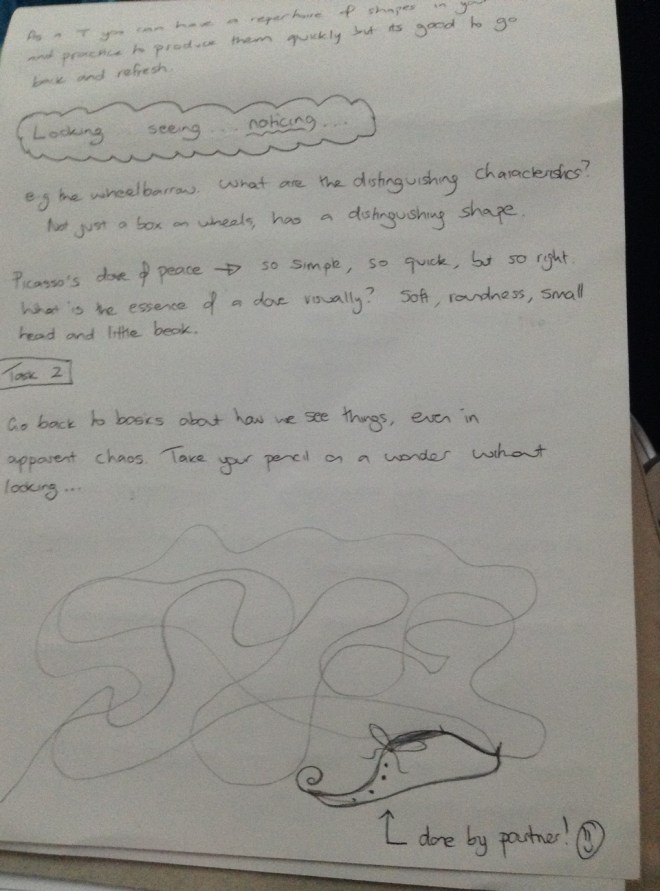 As a T you can have a repertoire of shapes in
and practice to produce them quickly but its good to go
back and refresh.
Looking... seeing... noticing...
e.g the wheelbarrow. What are the distinguishing characteristics?
Not just a box on wheels, has a distinguishing shape.
Picasso's dove of peace → so simple, so quick, but so right.
What is the essence of a dove visually? Soft, roundness, small
head and little beak.
Task 2
Go back to basics about how we see things, even in
apparent chaos. Take your pencil on a wonder without
looking...
done by partner!